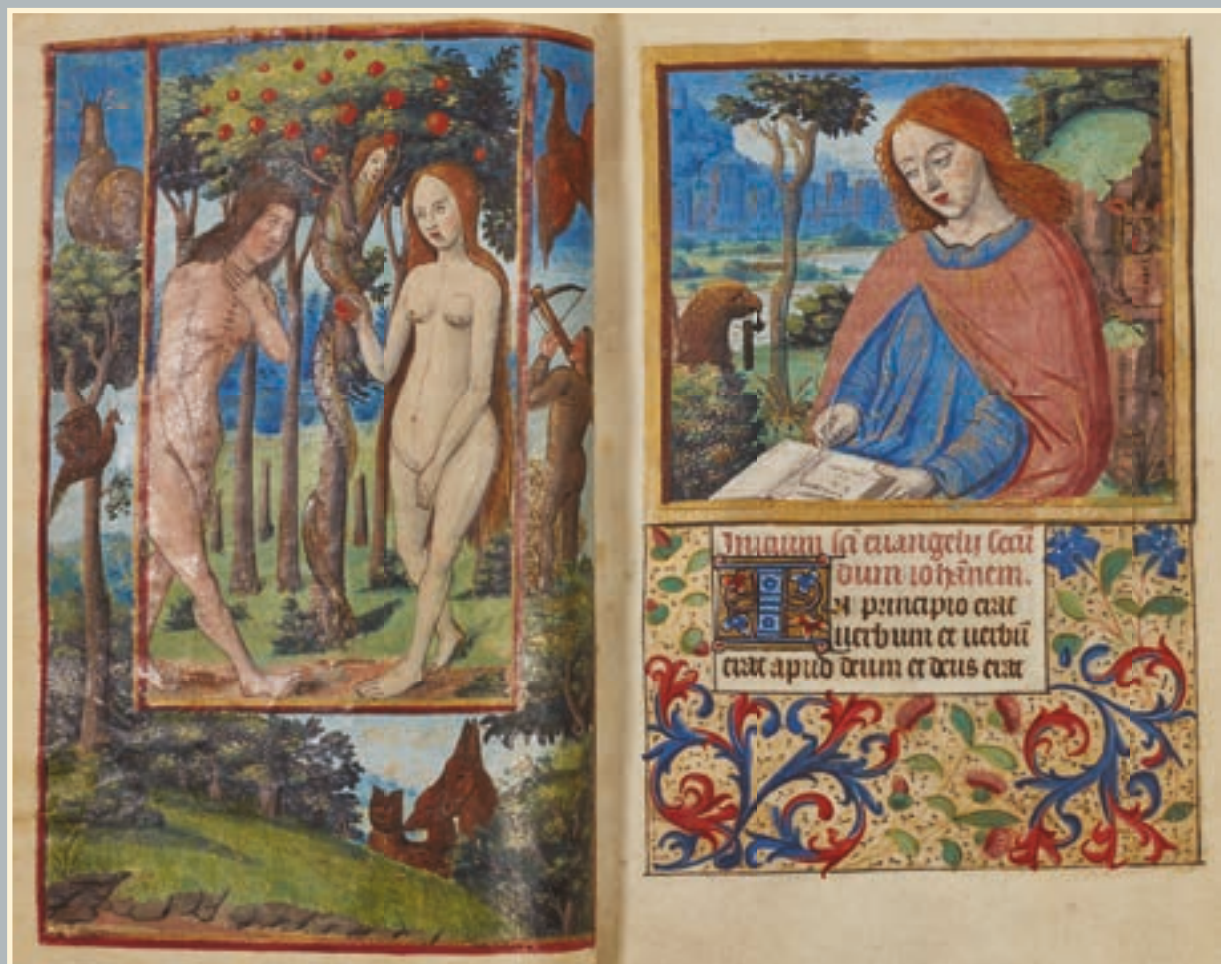 Inicium sc̄i euangelii secū
dum iohānem.
In principio erat
uerbum et uerbū
erat apud deum et deus erat